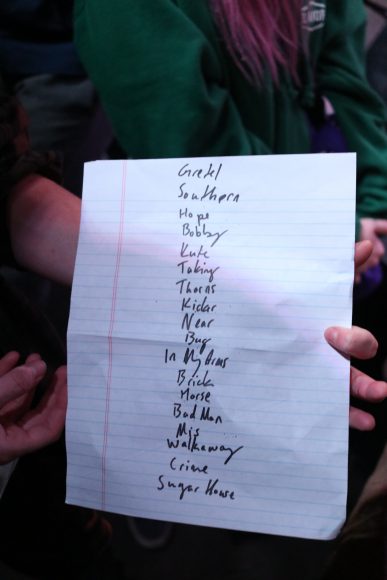 Gretel
Southern
Hope
Bobby
Kute
Taking
Thorns
Kicker
Near
Bug
In My Arms
Brick
Horse
Bad Man
Mis
Walkaway
Crime
Sugar House